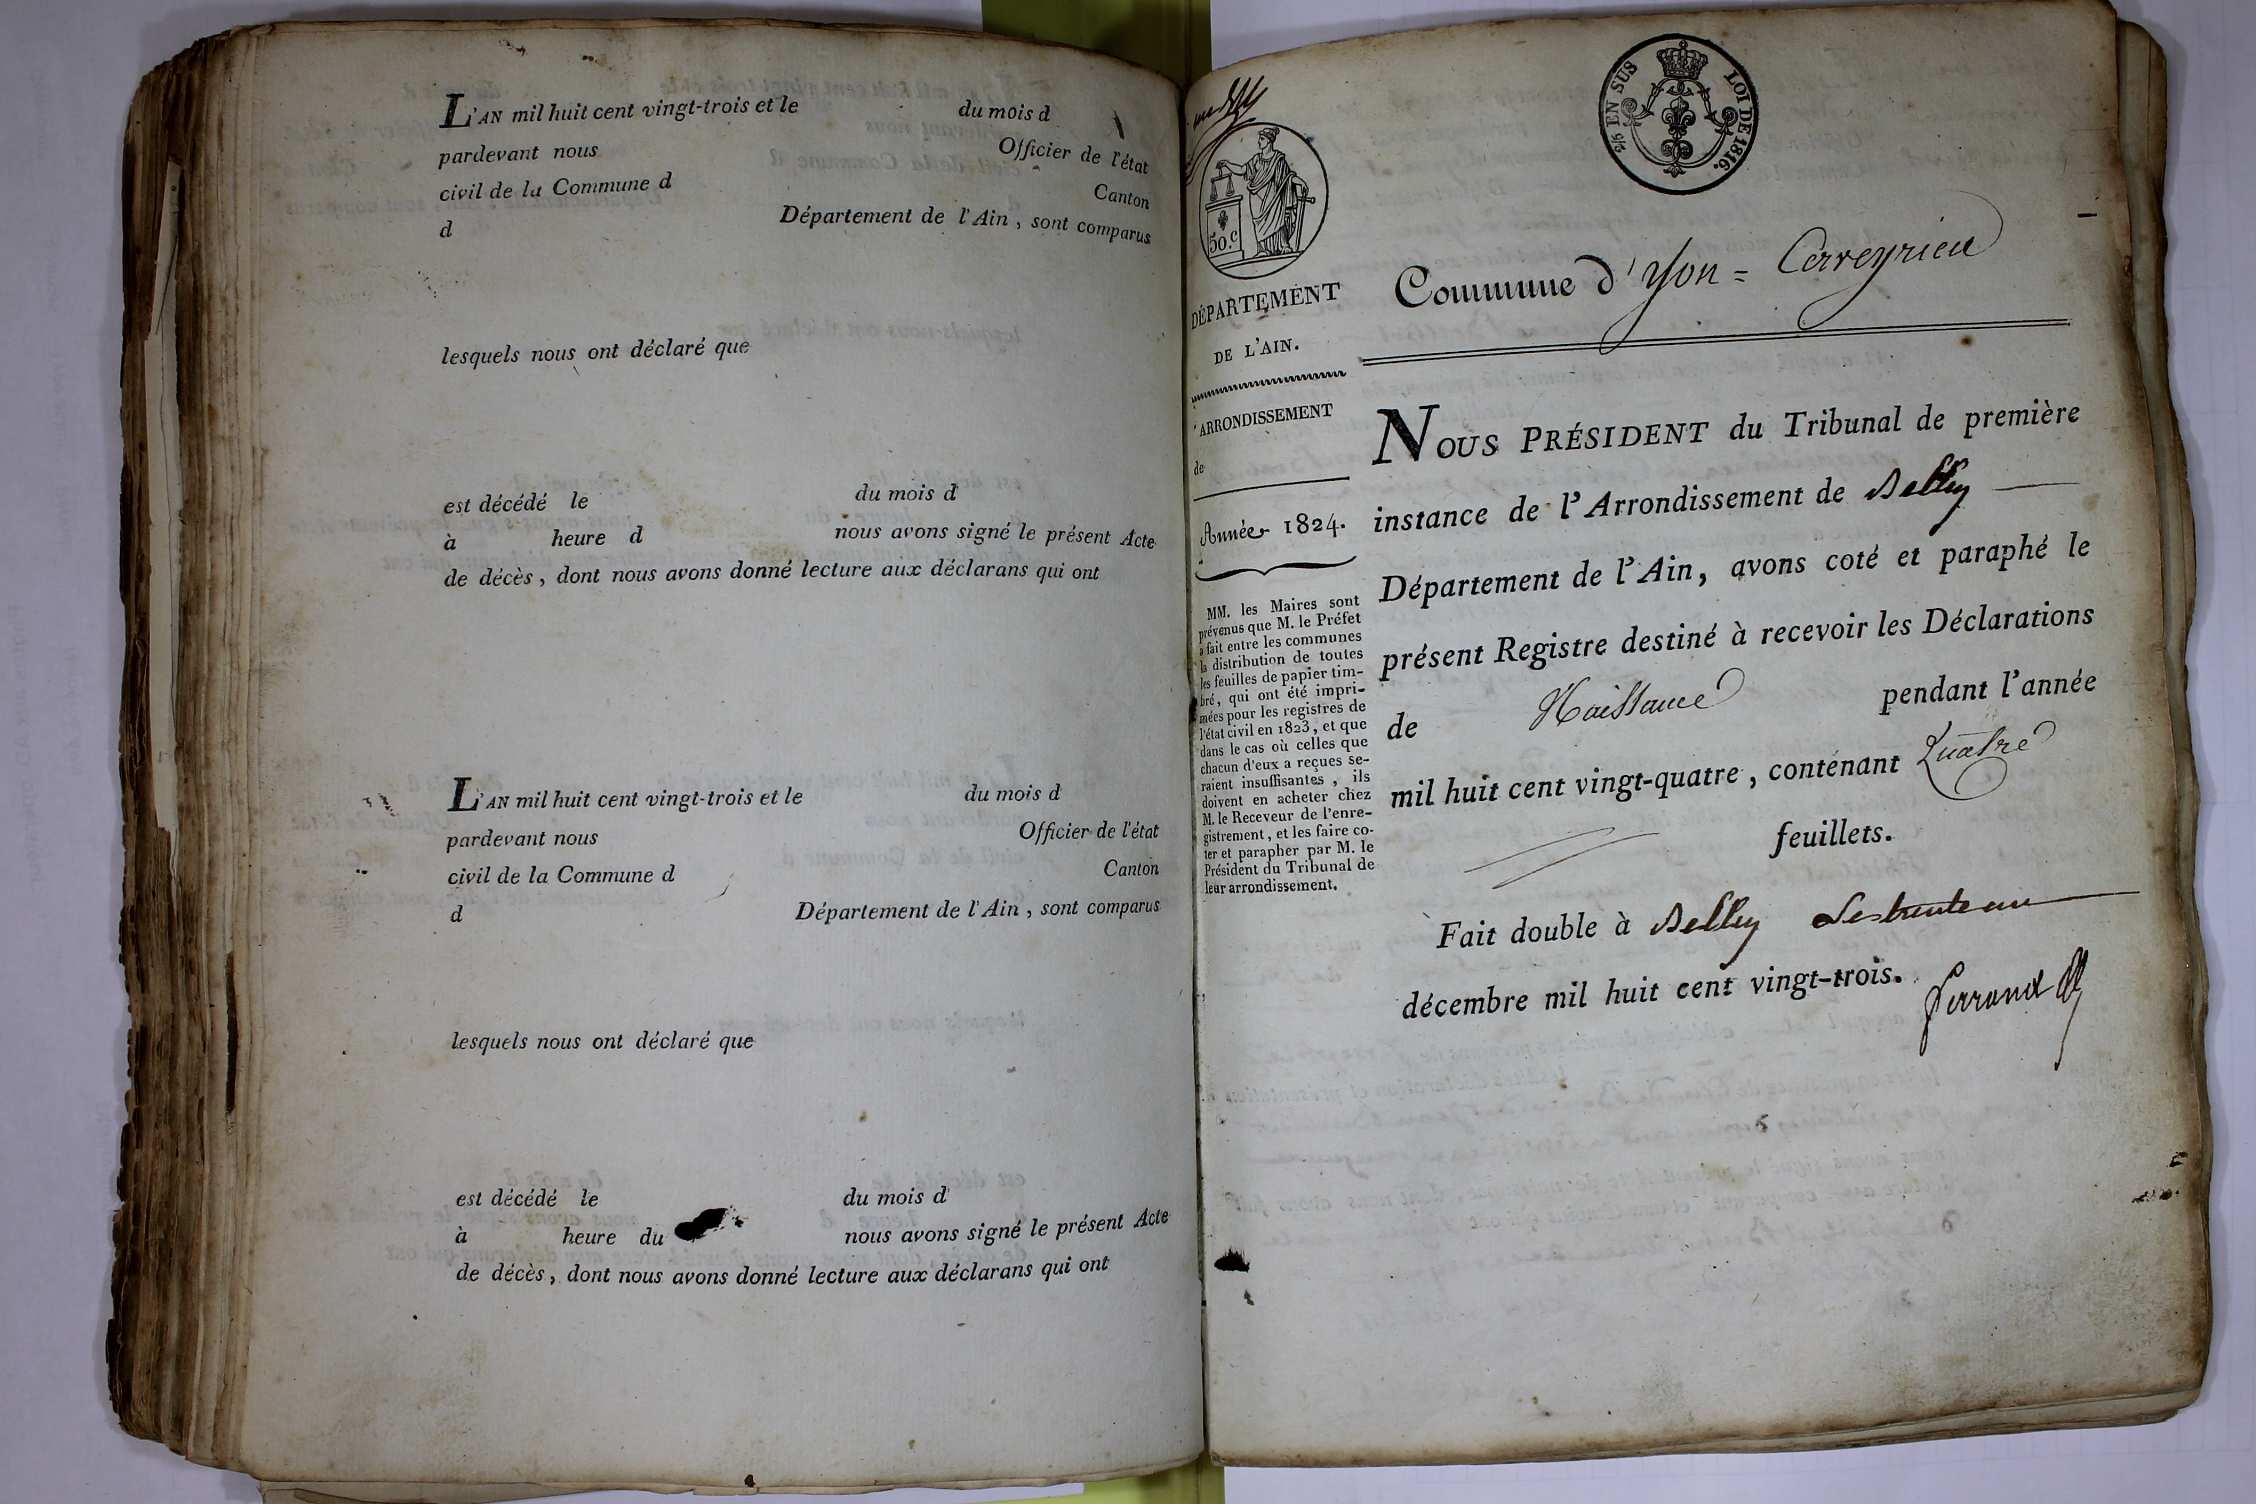 L'AN mil huit cent vingt-trois et le du mois d
pardevant nous Officier de l'état
civil de la Commune d Canton
d Département de l'Ain, sont comparus
lesquels nous ont déclaré que
est décédé le du mois d
à heure d nous avons signé le présent Acte
de décès, dont nous avons donné lecture aux déclarans qui ont
L'AN mil huit cent vingt-trois et le du mois d
pardevant nous Officier de l'état
civil de la Commune d Canton
d Département de l'Ain, sont comparus
lesquels nous ont déclaré que
est décédé le du mois d
à heure du nous avons signé le présent Acte
de décès, dont nous avons donné lecture aux déclarans qui ont
EN SUS LOI DE 1816.
50.c
DÉPARTEMENT
DE L'AIN.
ARRONDISSEMENT
de
Année 1824.
MM. les Maires sont
prévenus que M. le Préfet
a fait entre les communes
la distribution de toutes
les feuilles de papier tim-
bré, qui ont été impri-
mées pour les registres de
l'état civil en 1823, et que
dans le cas où celles que
chacun d'eux a reçues se-
raient insuffisantes, ils
doivent en acheter chez
M. le Receveur de l'enre-
gistrement, et les faire co-
ter et parapher par M. le
Président du Tribunal de
leur arrondissement.
Commune d'Yon = Cerveyrieu
NOUS PRÉSIDENT du Tribunal de première
instance de l'Arrondissement de Belley
Département de l'Ain, avons coté et paraphé le
présent Registre destiné à recevoir les Déclarations
de Naissance pendant l'année
mil huit cent vingt-quatre, contenant Quatre
feuillets.
Fait double à Belley Le trente un
décembre mil huit cent vingt-trois.
Ferrand